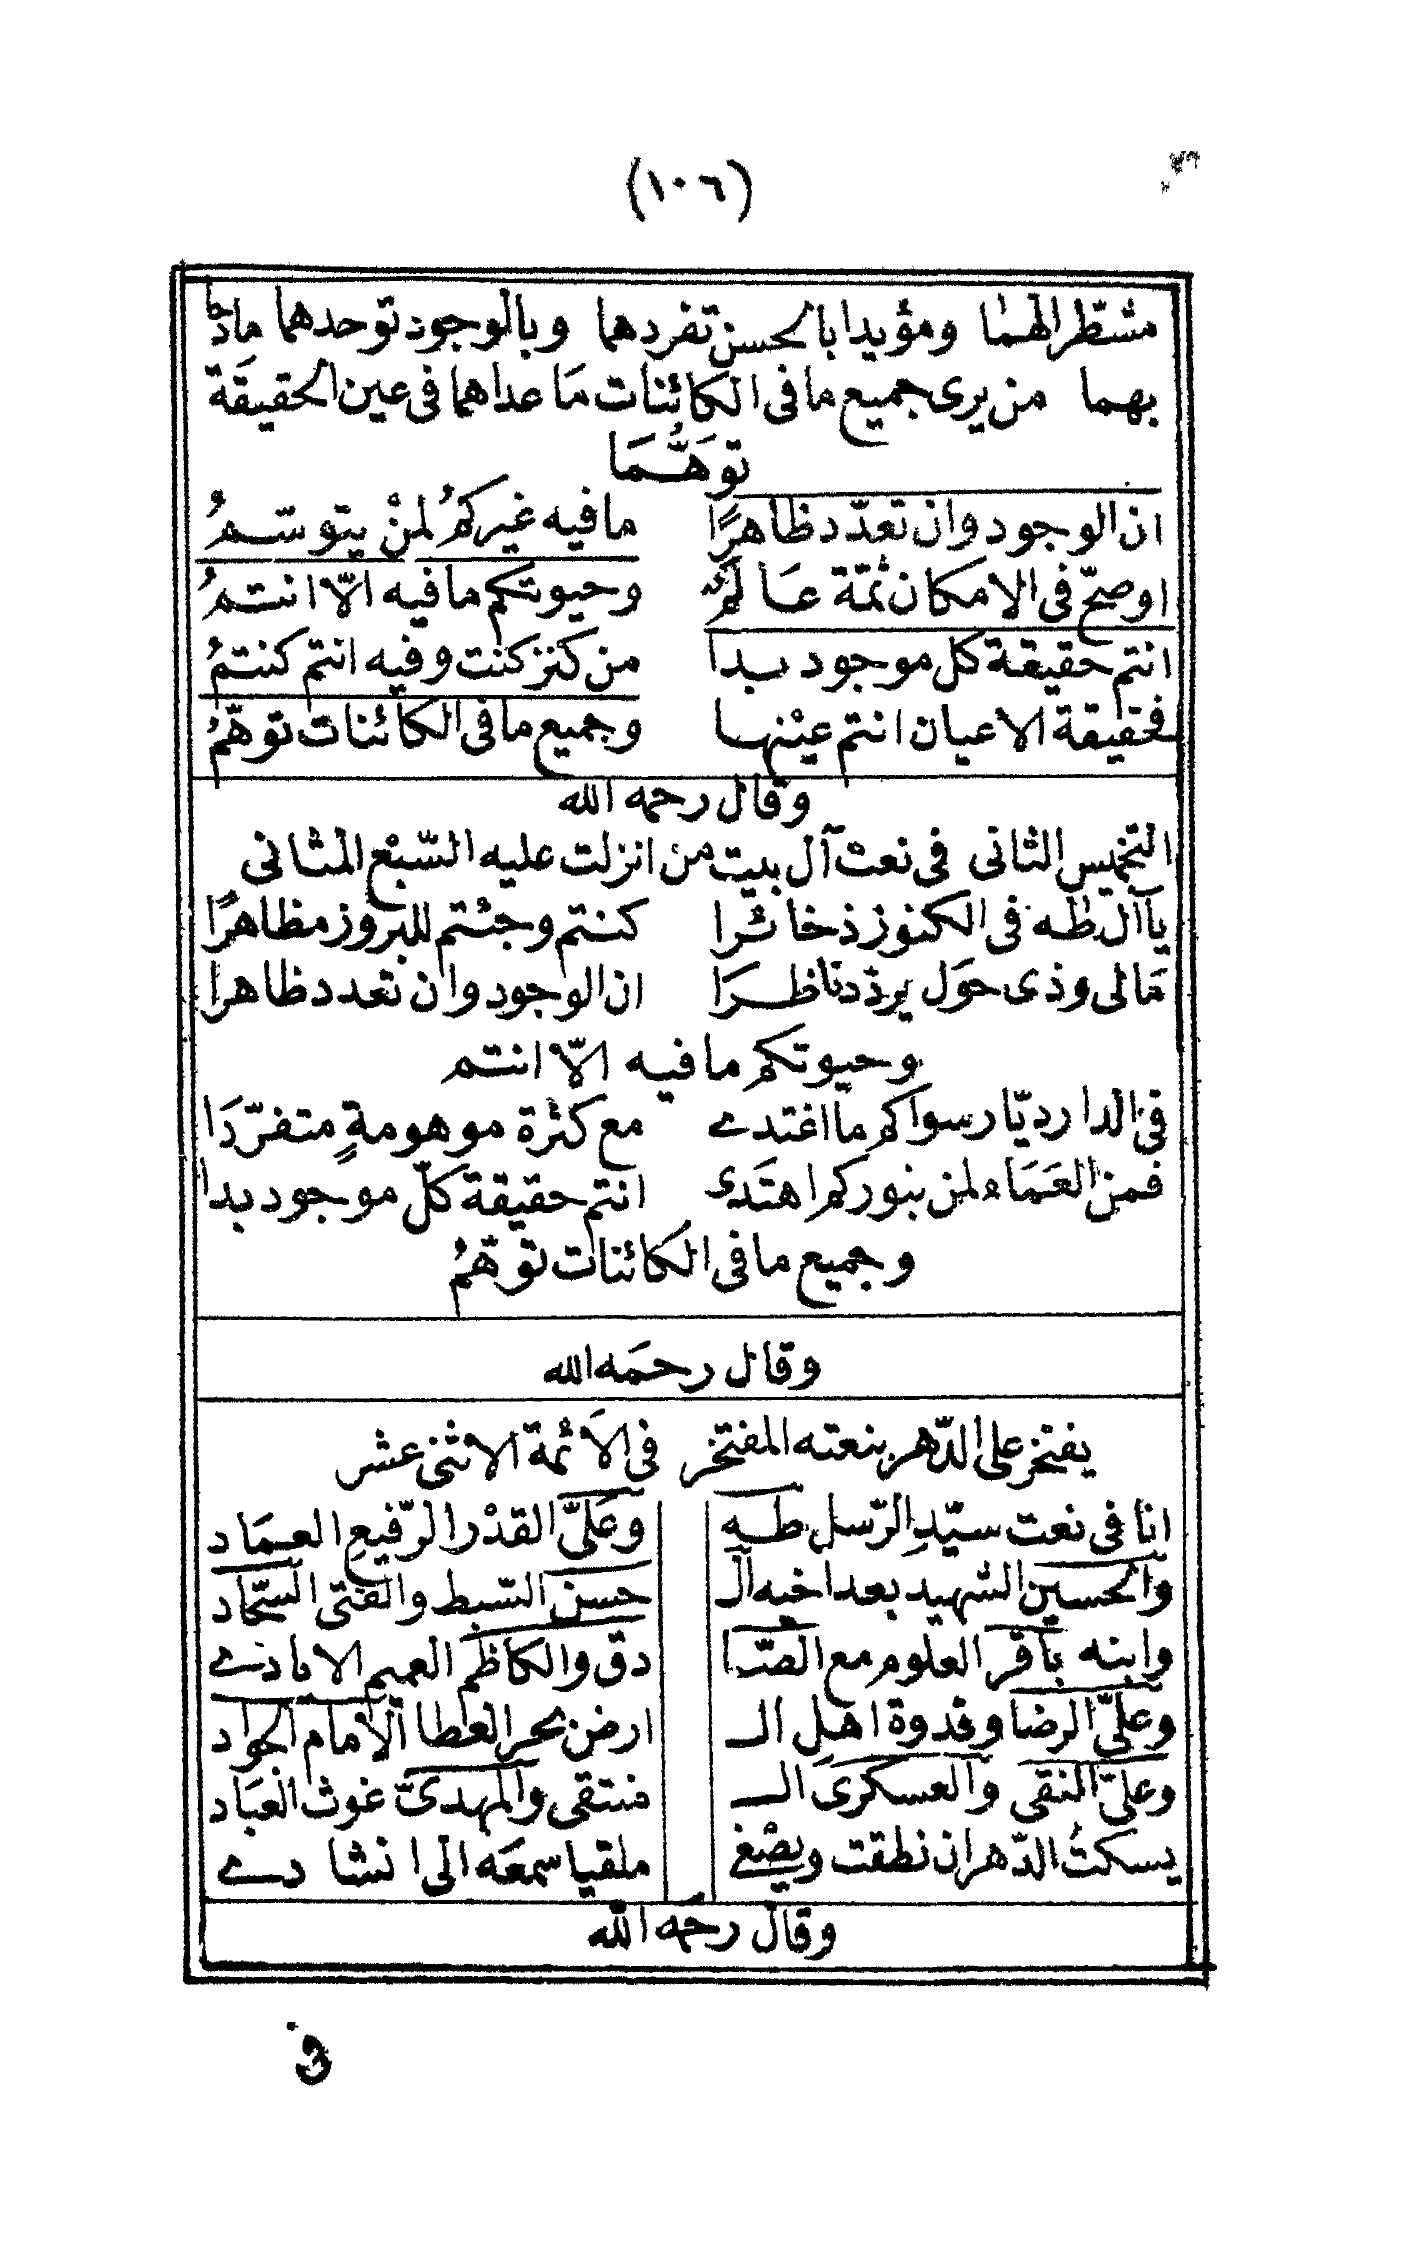 (١٠٦)
مشطر الهما ومؤيدا بالحسن تفردهما وبالوجود توحدهما مادحا
بهما من يرى جميع ما فى الكائنات مَا عداهما فى عين الحقيقَة
توهَّمَا
ان الوجود وان تعدّد ظاهرًا ما فيه غيركمُ لمنْ يتوسّمُ
اوصحّ فى الامكان ثمّة عَالمٌ وحيوتكم ما فيه الاّ انتمُ
انتم حقيقة كل موجود بدا من كنز كنت وفيه انتم كنتمُ
فحقيقة الاعيان انتم عيْنها وجميع ما فى الكائنات توهّمُ
وقال رحمه الله
التخميس الثانى فى نعتْ آل بيت من انزلت عليه السّبْع المثانى
يا آل طٰه فى الكنوز ذخائرا كنتم وجئتم للبروز مظاهرًا
مَالى وذى حوَل يردّدنا ظرَا ان الوجود وان تعدد ظاهرا
وحيوتكم ما فيه الاّ انتم
فى الدار ديّار سواكم ما اغتدے مع كثرة موهومةٍ متفرّدَا
فمن العَمَاء لمن بنوركم اهتَدى انتم حقيقة كلّ موجود بدا
وجميع ما فى الكائنات توهّمُ
وقال رحمَه الله
يفتخر على الدّهر بنعته المفتخر فى الاَئمة الاثنى عشر
انا فى نعت سيّدِ الرّسل طه وعَلىّ القدْر الرّفيعِ العمَاد
والحسين الشهيد بعد اخيه الـ حسن السّبط والفتى السّجّاد
وابنه باقر العلوم مع الصّا دق والكاظم العميم الايادے
وعلىّ الرضا وقدوة اهل الـ ارض بحر العطا الامام الجواد
وعلىّ النقى والعسكرى الـ منتقى والمهدىّ غوث العبَاد
يسكتُ الدّهر ان نطقت ويصْغى ملقيا سمعَه الى انشادے
وقال رحمَه الله